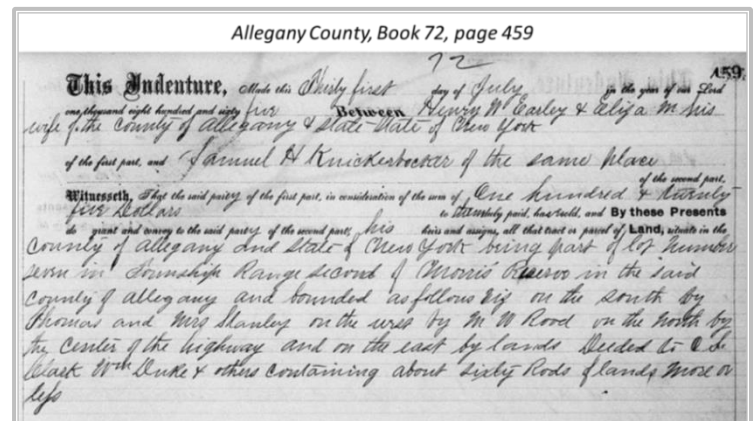 Allegany County, Book 72, page 459
72
459
This Indenture, Made this Thirty first day of July in the year of our Lord
one thousand eight hundred and sixty five Between Henry W Earley & Eliza M his
wife of the county of Allegany & state state of New York
of the first part, and Samuel H Knickerbocker of the same place
of the second part,
Witnesseth, That the said party of the first part, in consideration of the sum of One hundred & twenty
five Dollars to duly paid, has sold, and By these Presents
do grant and convey to the said party of the second part, his heirs and assigns, all that tract or parcel of Land, situate in the
county of Allegany and State of New York being part of lot number
seven in Township Range second of Morris Reserve in the said
county of Allegany and bounded as follows viz on the south by
Thomas and Mrs Stanley on the west by M W Rood on the North by
the center of the highway and on the east by lands Deeded to
Clark Wm Duke & others containing about sixty Rods of land, more or
less